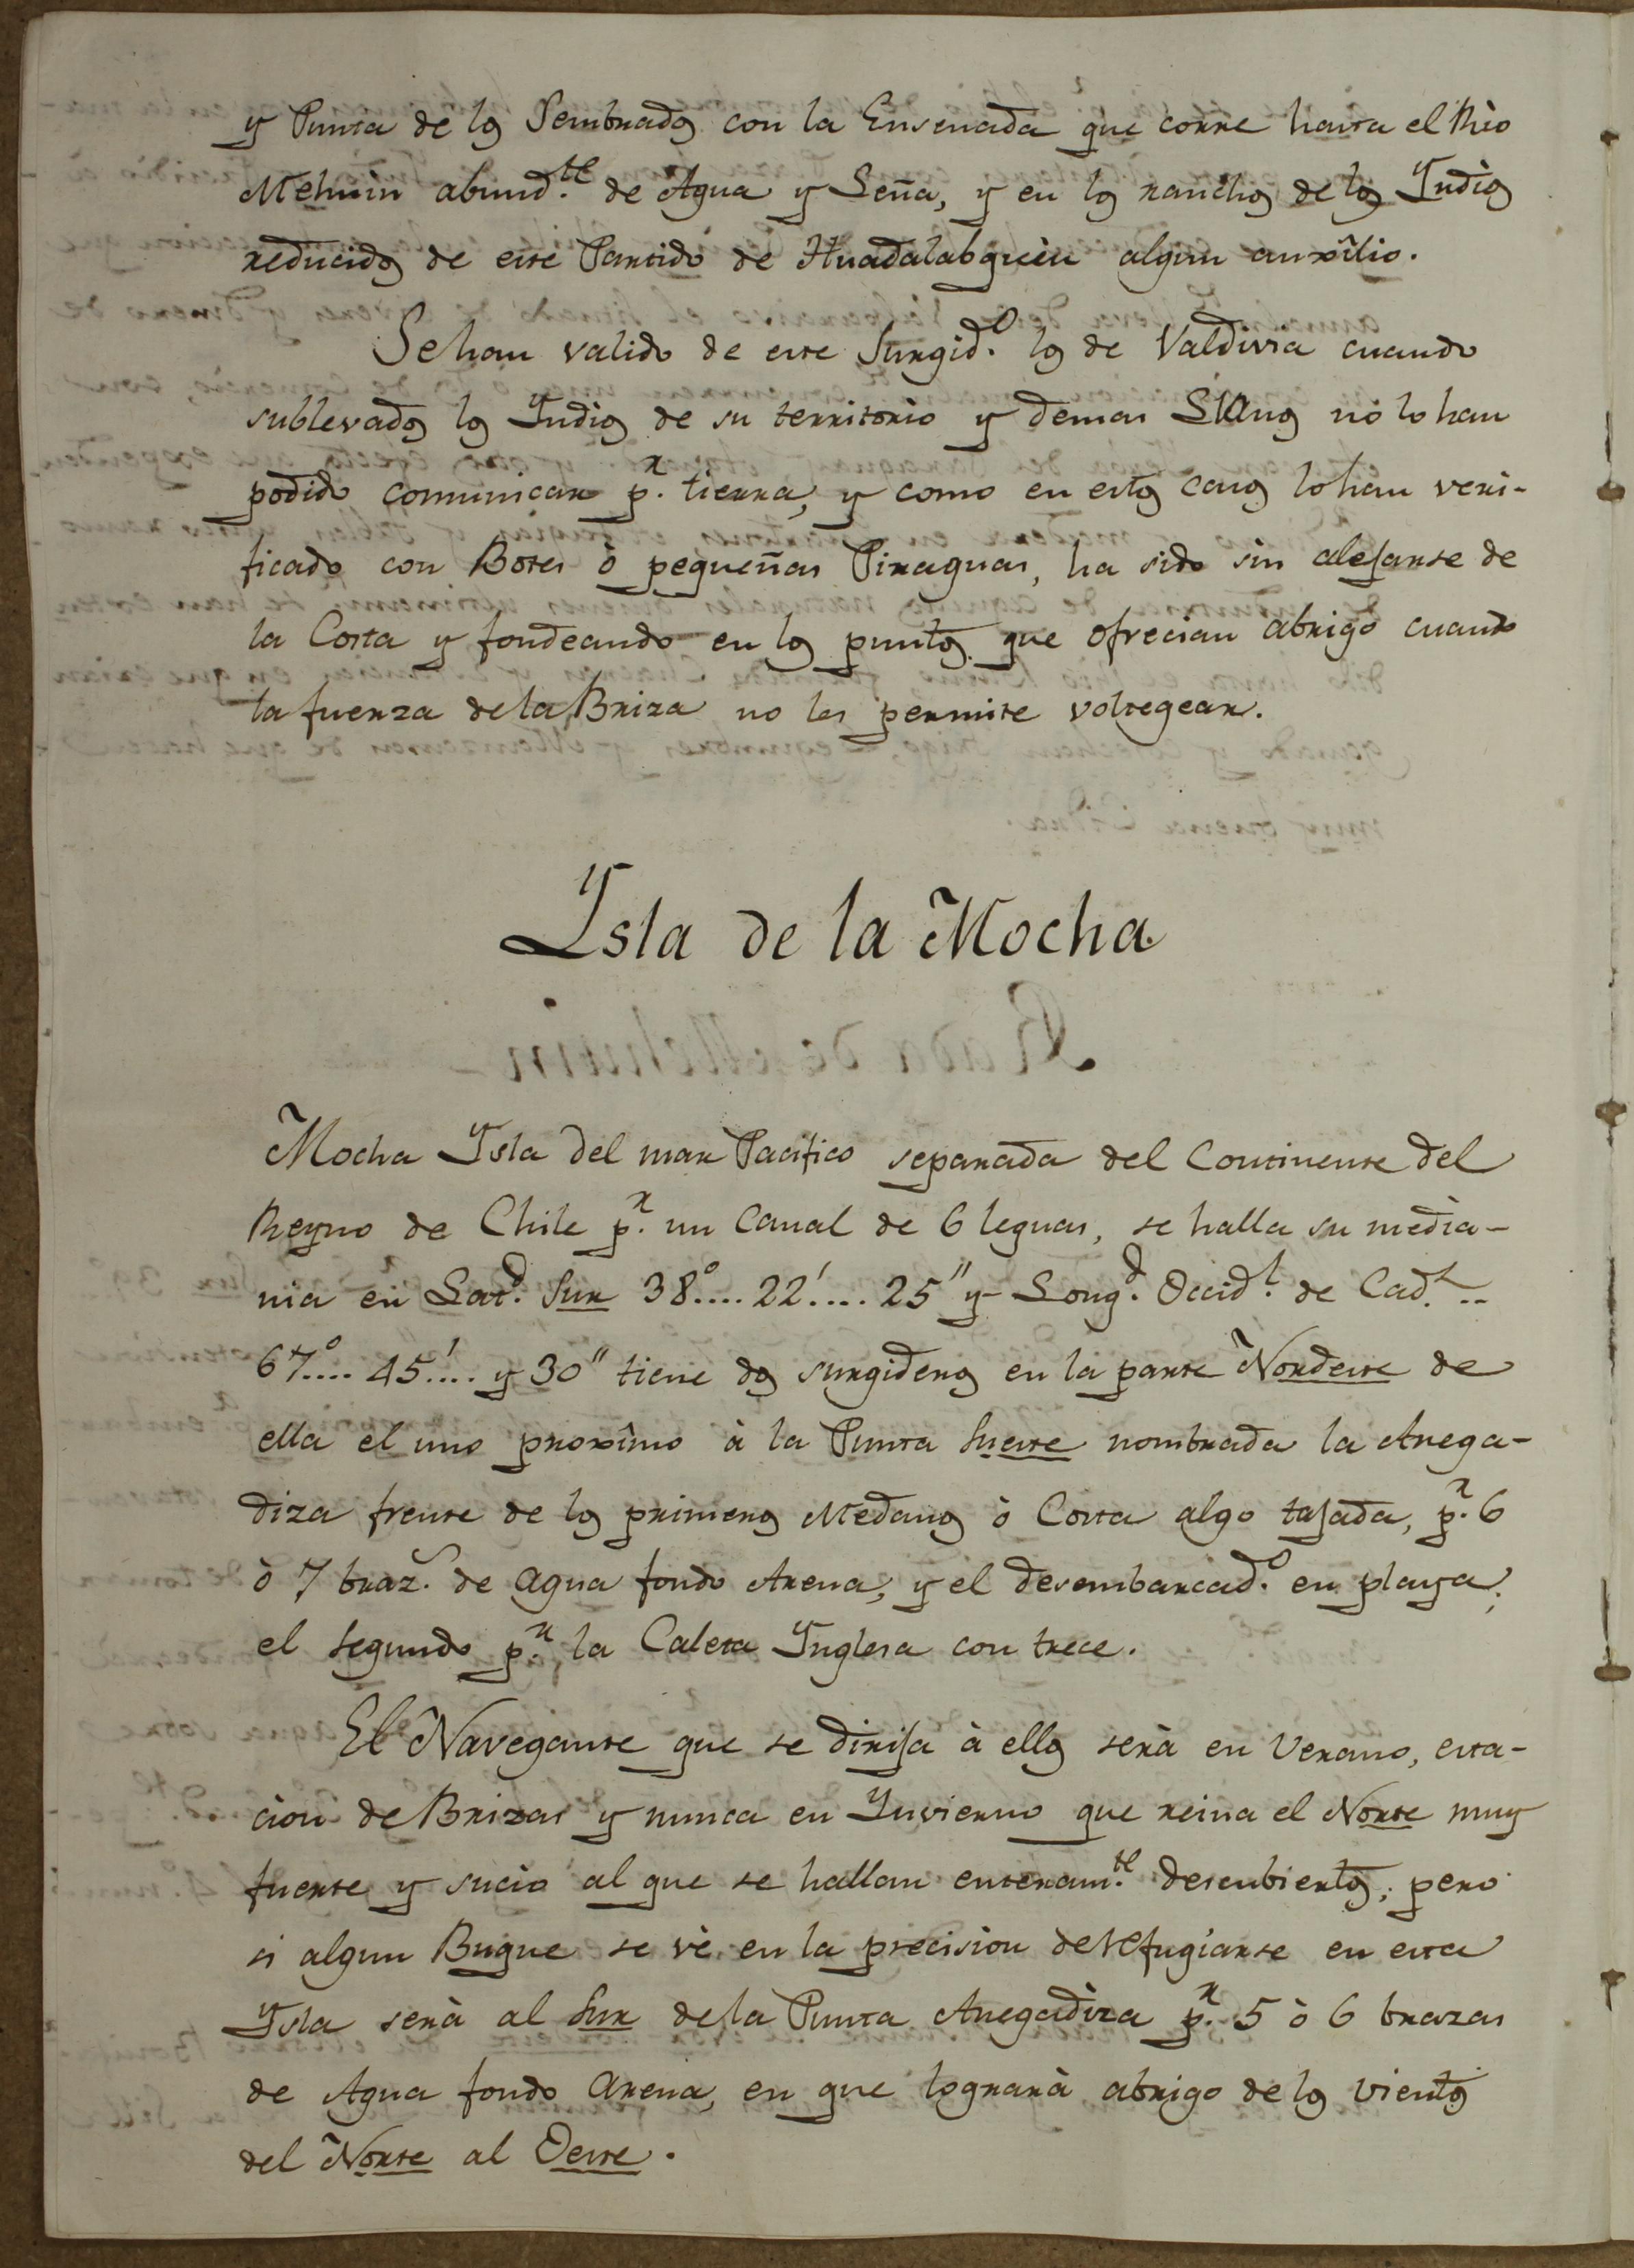 y Punta de los Sembrados con la Ensenada que corre hasta el Rio
Mehuin abund.te de Agua y Leña, y en los ranchos de los Yndios
reducidos de este Partido de Huadalabquèn algun auxîlio.
Se han valido de este Surgid.o los de Valdivia cuando
sublevados los Yndios de su territorio y demas no lo han
podido comunicar p.r tierra, y como en estos casos lo han veri-
ficado con Botes ò pequeñas Piraguas, ha sido sin alejarse de
la Costa y fondeando en los puntos que ofrecian abrigo cuando
la fuerza de la Briza no les permite voltegear.
Ysla de la Mocha
Mocha Ysla del mar Pacifico separada del Continente del
Reyno de Chile p.r un Canal de 6 leguas, se halla su media-
nia en Lat.d Sur 38°.... 22'.... 25" y Long.d Occid.l de Cad.z..
67°.... 45'.... y 30" tiene dos surgideros en la parte Nordeste de
ella el uno proxîmo à la Punta Sueste nombrada la Anega-
diza frente de los primeros Medanos ò Costa algo tajada, p.r 6
ò 7 braz.s de agua fondo Arena, y el desembarcad.o en playa;
el segundo p.r la Caleta Ynglesa con trece.
El Navegante que se dirija à ellos serà en Verano, esta-
cion de Brizas y nunca en Ynvierno que reina el Norte muy
fuerte y sucio al que se hallan enteram.te descubiertos; pero
si algun Buque se vè en la precision de refugiarse en esta
Ysla serà al Sur de la Punta Anegadiza p.r 5 ò 6 brazas
de Agua fondo Arena, en que lograrà abrigo de los vientos
del Norte al Oeste.